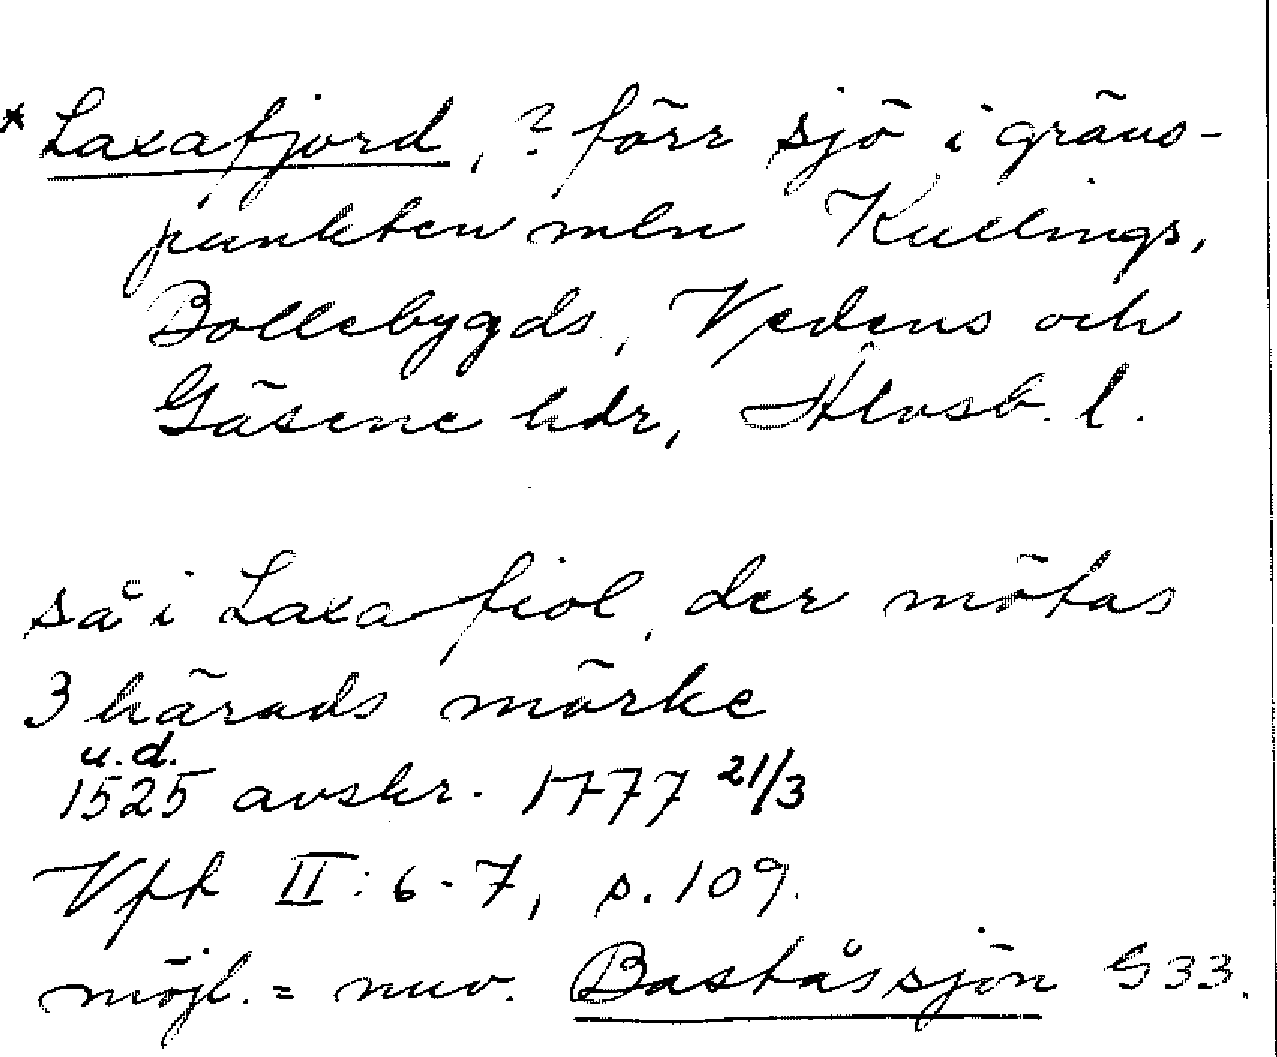 * Laxafjord, ? förr sjö i gräns-
punkten mln Kullings,
Bollebygds, Vedens och
Gäsene hdr, Älvsb. l.
så i Laxa fiol, der mötas
3 härads mörke
u.d.
1525 avskr. 1777 21/3
Vft II: 6-7, s. 109.
möjl. = nuv. Baståssjön G33.